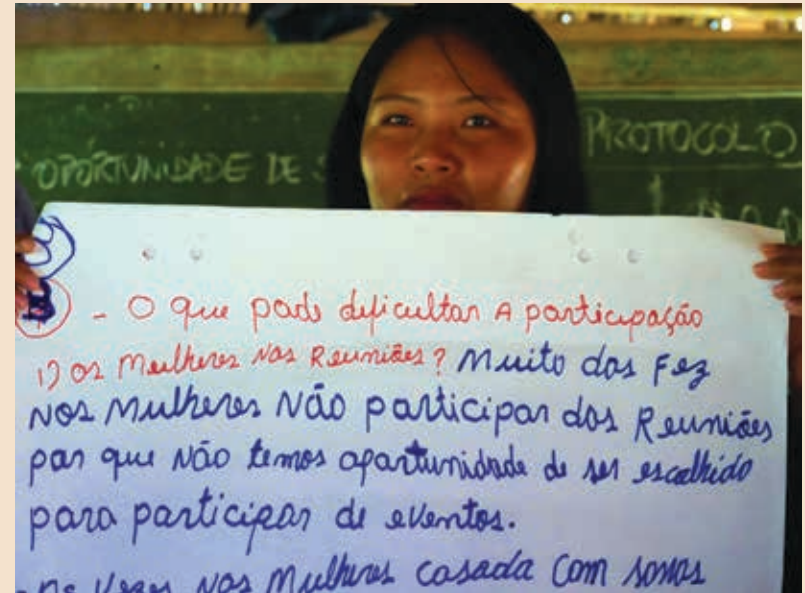 OPORTUNIDADE DE
PROTOCOLO
- O que pode dificultar A participação
1) os Mulheres Nas Reuniões? Muito das Fez
Nos Mulheres Não participar das Reuniões
par que Não temos apartunidade de ser escalhido
para participar de eventos.
Vezes Nos Mulheres casada com